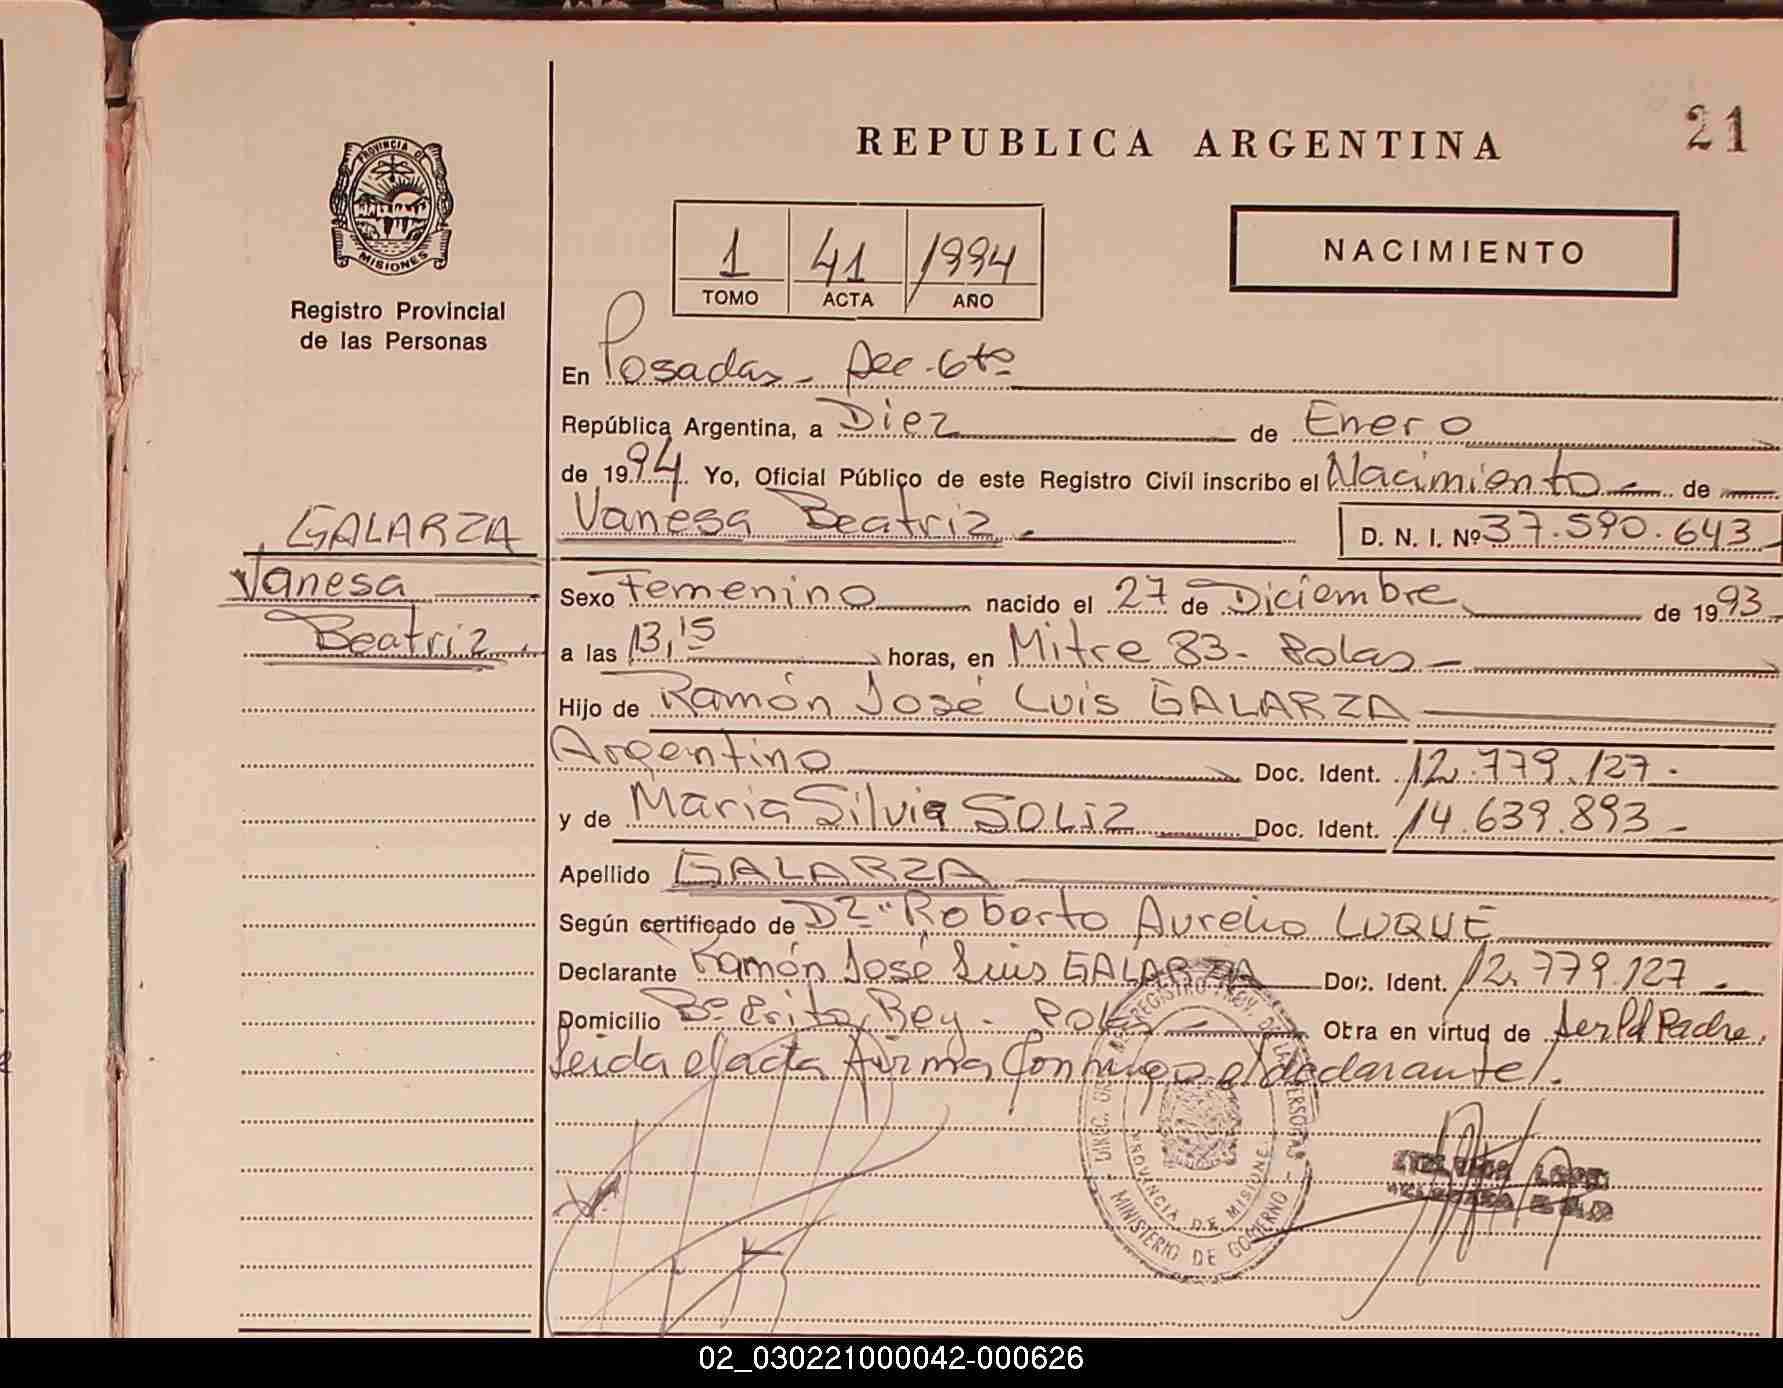 REPUBLICA ARGENTINA
21
PROVINCIA DE
MISIONES
Registro Provincial
de las Personas
1 41 1994
TOMO ACTA AÑO
NACIMIENTO
En Posadas - Sec. 6ta
República Argentina, a Diez de Enero
de 1994 Yo, Oficial Público de este Registro Civil inscribo el Nacimiento de
Vanesa Beatriz. D. N. I. Nº 37.590.643
GALARZA
Vanesa
Beatriz.
Sexo Femenino nacido el 27 de Diciembre de 1993
a las 13,15 horas, en Mitre 83 - Pdas -
Hijo de Ramón José Luis GALARZA
Argentino Doc. Ident. 12.779.127.
y de Maria Silvia SOLIZ Doc. Ident. 14.639.893 -
Apellido GALARZA
Según certificado de Dr. Roberto Aurelio LUQUE
Declarante Ramón José Luis GALARZA Doc. Ident. 12.779.127 -
Domicilio Bº Rey - Pdas - Obra en virtud de ser el Padre,
Leida el acta firma conmigo el declarante.
PROVINCIA DE MISIONES
MINISTERIO DE GOBIERNO
02_030221000042-000626